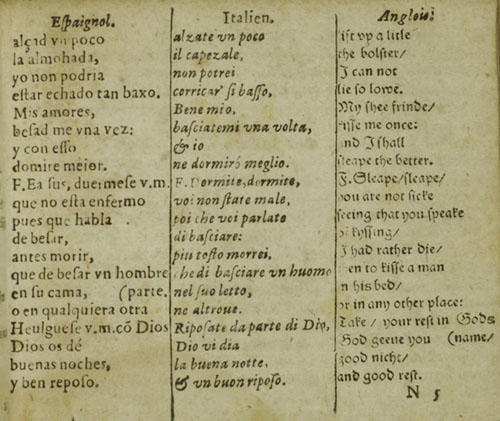 Espaignol.
alçad vn poco
la almohada,
yo non podria
estar echado tan baxo.
Mis amores,
besad me vna vez:
y con esso
domire meior.
F.Ea sus, duermese v.m.
que no esta enfermo
pues que habla
de besar,
antes morir,
que de besar vn hombre
en su cama, (parte.
o en qualquiera otra
Heulguese v.m.cõ Dios
Dios os dé
buenas noches,
y ben reposo.
Italien.
alzate vn poco
il capezale,
non potrei
corricar' si basso,
Bene mio,
basciatemi vna volta,
& io
ne dormirò meglio.
F. Dormite, dormite,
voi non state male,
poi che voi parlate
di basciare:
piu tosto morrei,
che di basciare vn huomo
nel suo letto,
ne altroue.
Riposate da parte di Dio,
Dio vi dia
la buena notte,
& vn buon riposo.
Anglois.
lift vp a litle
the bolster/
I can not
lie so lowe.
My shee frinde/
kisse me once:
and I shall
sleape the better.
F.Sleape/sleape/
you are not sicke
seeing that you speake
of kyssing/
I had rather die/
then to kisse a man
in his bed/
or in any other place:
Take/ your rest in Gods
God geeue you (name/
good nicht/
and good rest.
N 5